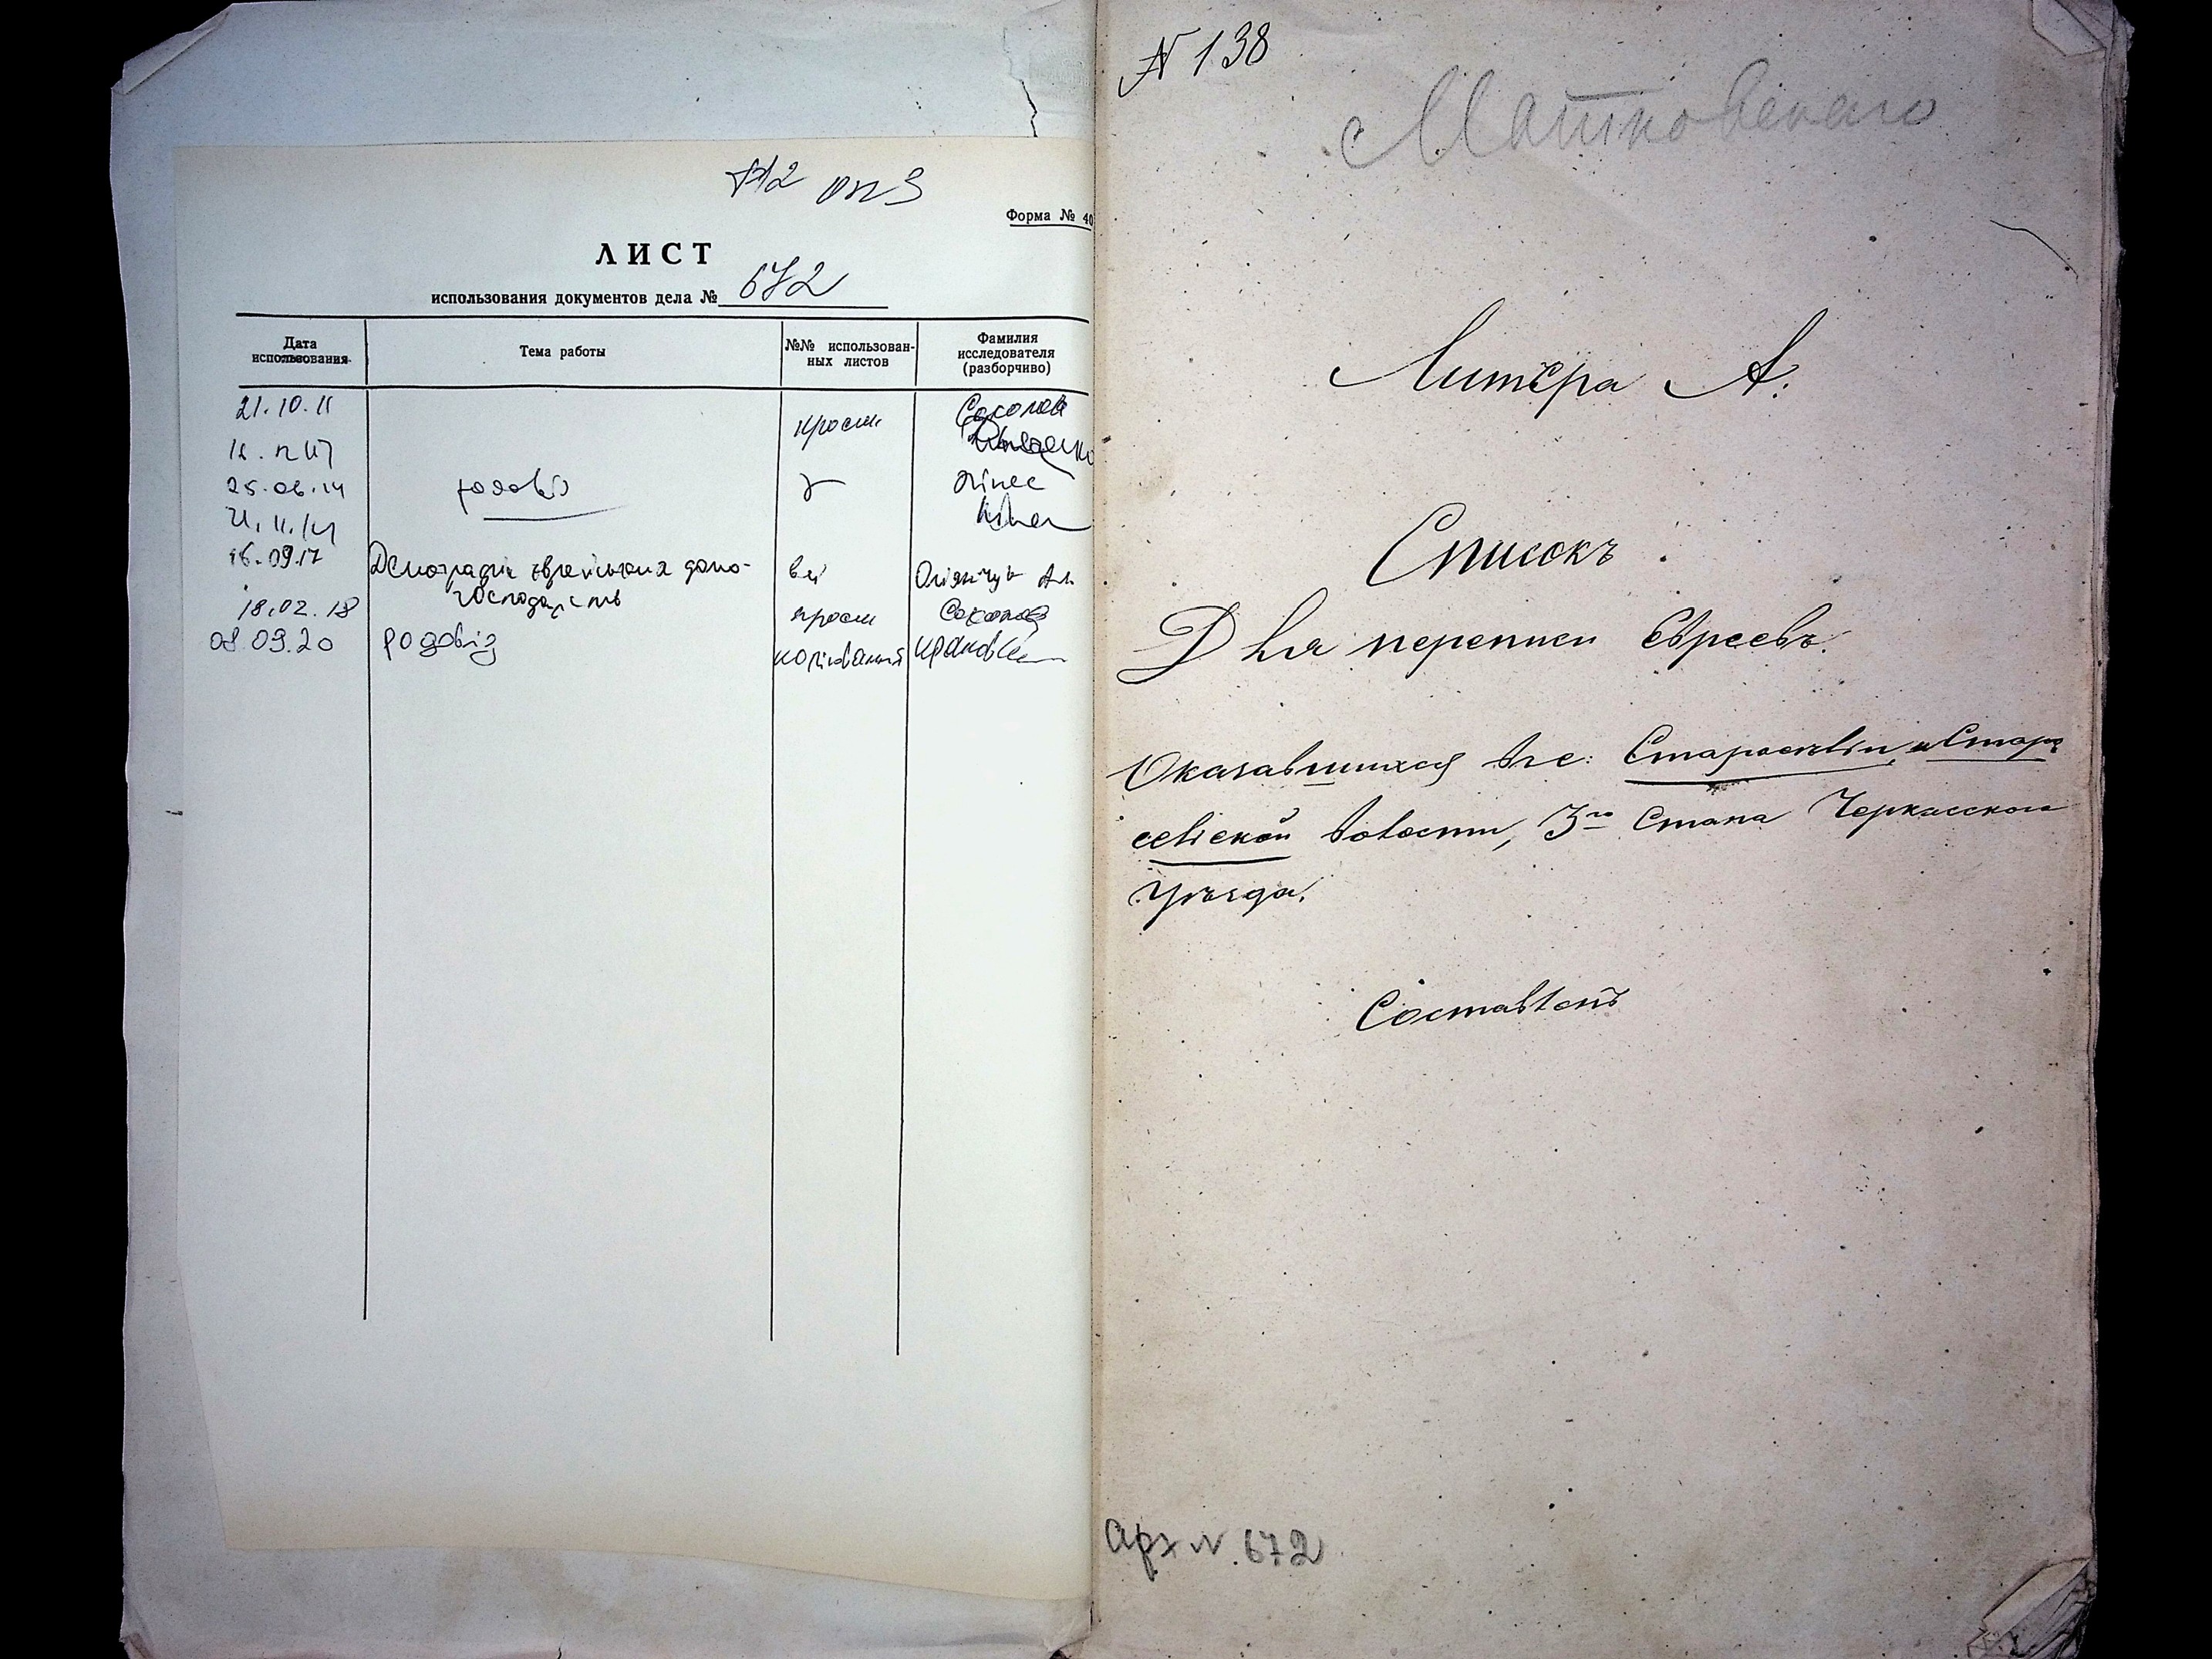 оп 3
Форма № 40
ЛИСТ
использования документов дела № 672
Дата использования
Тема работы
№№ использован-
ных листов
Фамилия
исследователя
(разборчиво)
21.10.11 просм. Соколов
25.06.14 родовід
21.11.14
16.09.17 Демографія єврейських домо- всі
господарств
18.02.18 просм Соколов
08.09.20 родовід копіювання
N 138
Матковскаго
Литера А.
Списокъ
Для переписи Евреевъ.
Оказавшихся в с: Старосельи, и Старо
сельской волости, 3го Стана Черкасскаго
Уѣзда.
Составленъ
Арх N. 672